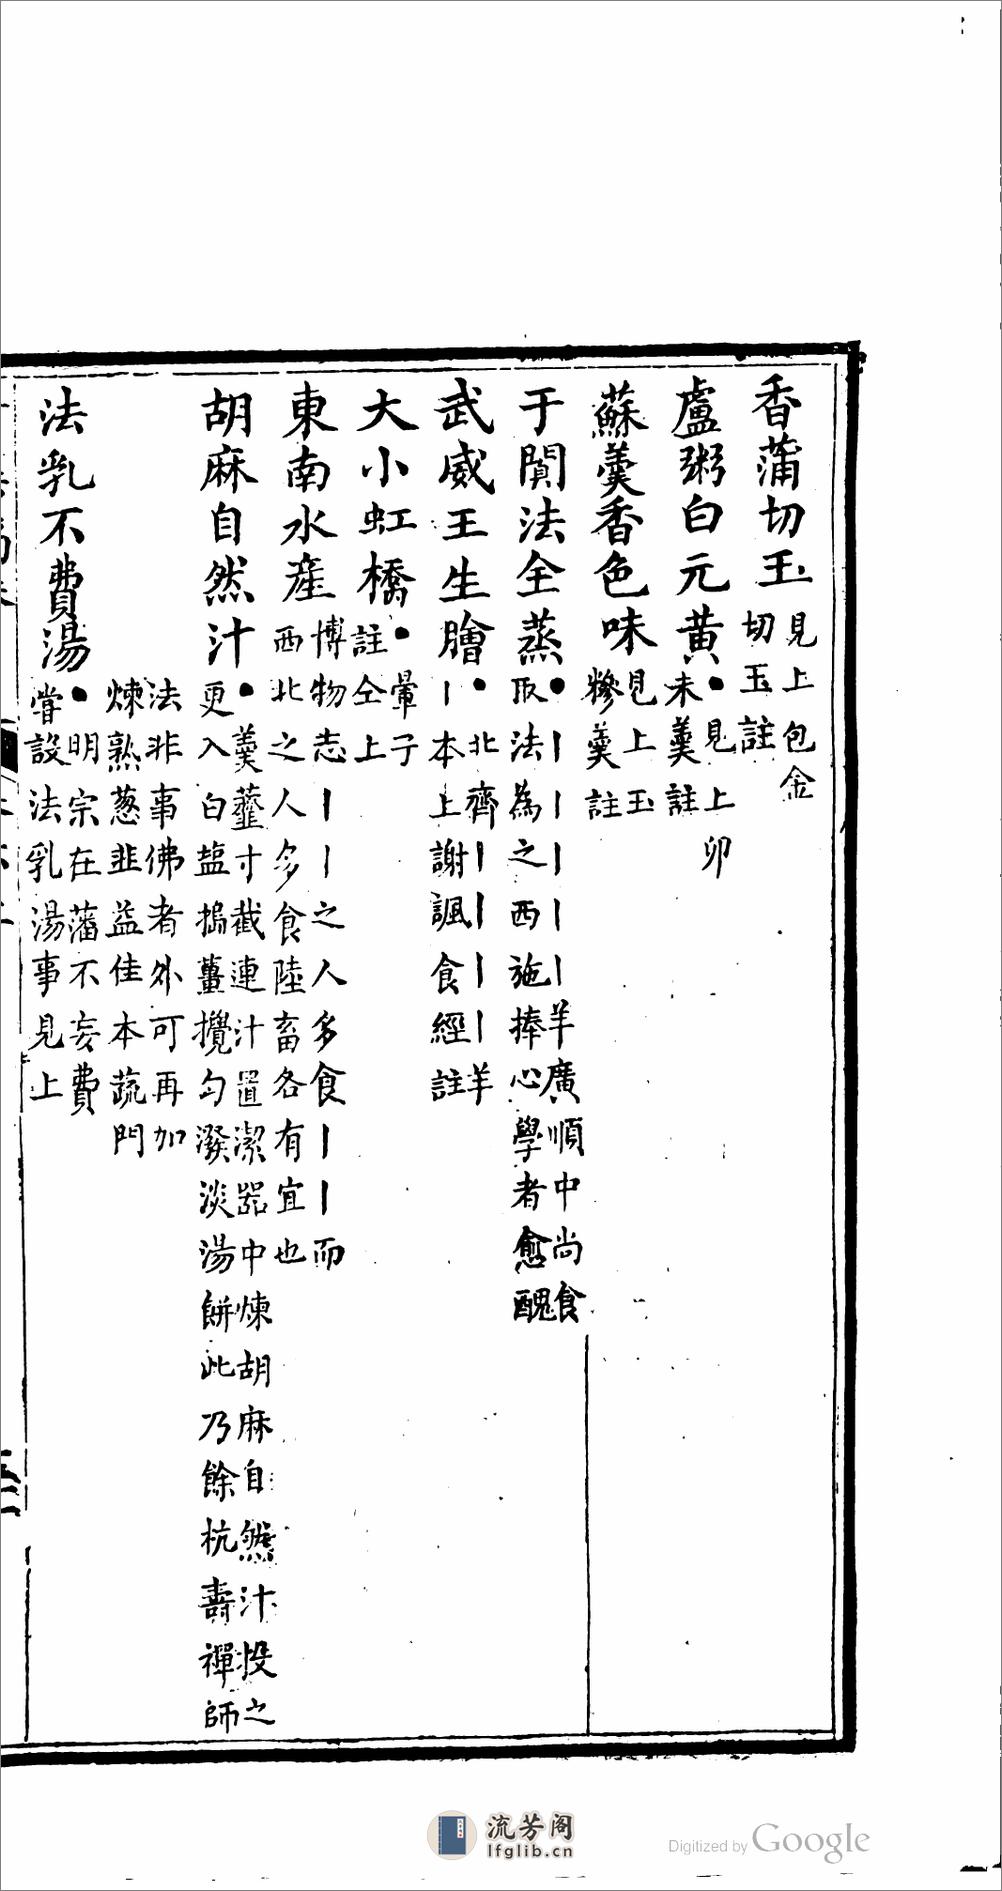 香蒲切玉 見上包金
切玉註
盧粥白元黄●見上卯
未羮註
蘇羮香色味 見上玉
糝羮註
于闐法全蒸●丨丨丨丨丨羊廣順中尚食
取法為之西施捧心學者愈醜
武威王生膾●北齊丨丨丨丨羊
丨本上謝諷食經註
大小虹橋●暈子
註仝上
東南水産 博物志丨丨之人多食丨丨而
西北之人多食陸畜各有宜也
胡麻自然汁●羮虀寸截連汁置潔器中煉胡麻自然汁投之
更入白盐搗薑攪匀潑淡湯餅此乃餘杭壽禪師
法非事佛者外可再加
煉熟葱韭益佳本蔬門
法乳不費湯●明宗在藩不妄費
嘗設法乳湯事見上
流芳阁
lfglib.cn
Digitized by Google